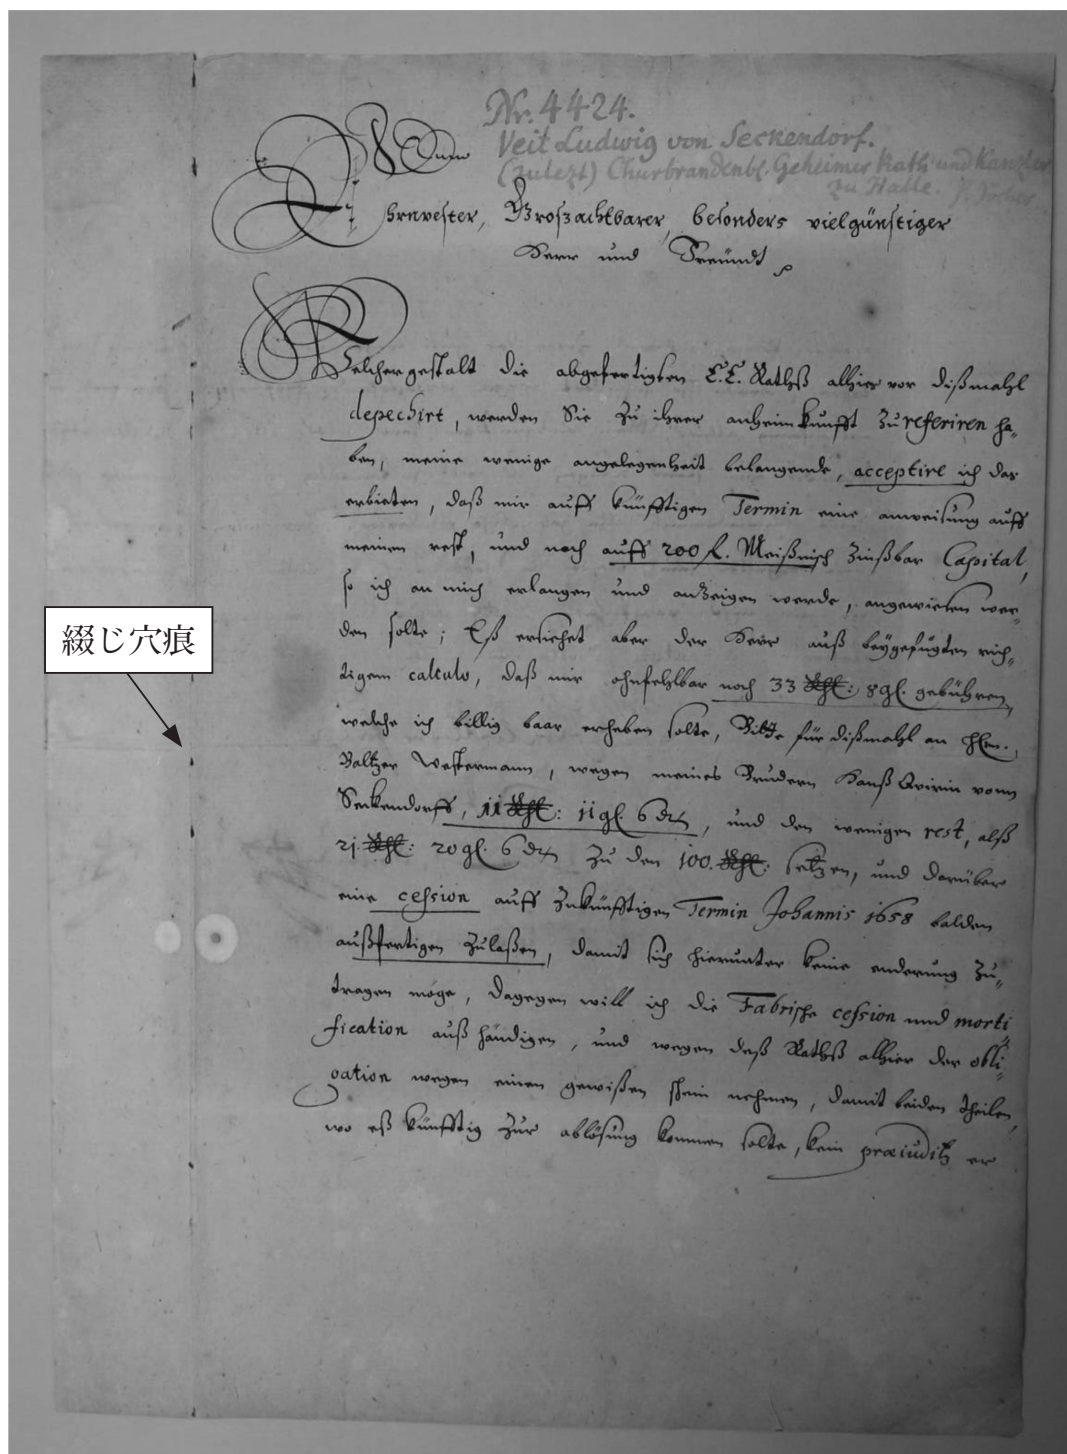 Nr. 4424.
Veit Ludwig von Seckendorf.
(zuletzt) Churbrandenbl. Geheimer Rath und Kanzler
zu Halle.
Ehrnvester, Großachtbarer, besonders vielgünstiger
Herr und Freündt
Welchergestalt die abgefertigten E.E. Rathß alhier vor dißmahl
depechirt, werden Sie zu ihrer anheimkunfft zu referiren ha-
ben, meine wenige angelegenheit belangende, acceptire ich das
erbieten, daß mir auff künfftigen Termin eine anweisung auff
meinen rest, und noch auff 200 fl. Meißnisch zinßbar Capital,
so ich an mich erlangen und anzeigen werde, angewiesen wer-
den solte; Eß ersiehet aber der Herr auß beygefügten rich-
tigem calculo, daß mir ohnfehlbar noch 33 Thl: 8 gl. gebühren,
welche ich billig baar erheben solte, Bitte für dißmahl an
Baltzer Westermann, wegen meines Brudern Hanß Quirin vonn
Seckendorff, 11 Thl: 11 gl. 6 , und den wenigen rest, alß
21. Thl: 20 gl. 6 zu den 100. Thl: setzen, und darüber
eine cession auff zukünfftigen Termin Johannis 1658 balden
außfertigen zulaßen, damit sich hierunter keine enderung zu-
tragen möge, dagegen will ich die Fabrische cession und morti
fication außhändigen, und wegen deß Rathß alhier der obli-
gation wegen einen gewißen schein nehmen, damit beiden theilen,
wo eß künfftig zur ablösung kommen solte, kein præiuditz er
綴じ穴痕